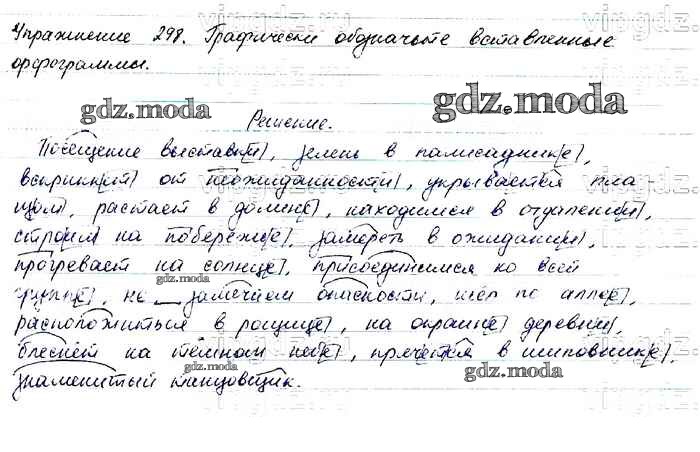 Упражнение 298. Графически обозначьте вставленные
орфограммы.
gdz.moda
gdz.moda
Решение.
Посещение выставк(и), зелень в палисадник(е),
вскрикн(ит) от неожиданност(и), укрывается пла
щ(ом), растает в долин(е), находимся в отдалени(и),
стро(им) на побережь(е), замереть в ожидани(и),
gdz.moda
прогревает на солнц(е), присоединимся ко всей
gdz.moda
групп(е), не _ замечаем опасности, шёл по алле(е),
расположиться в рощиц(е), на окраин(е) деревн(и),
блеснёт на тёмном неб(е), прячется в шиповник(е),
gdz.moda
gdz.moda
знаменитый танцовщик.